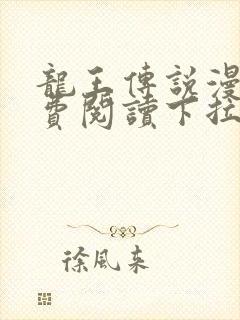 龍王傳說漫
費閱讀下拉
徐風來